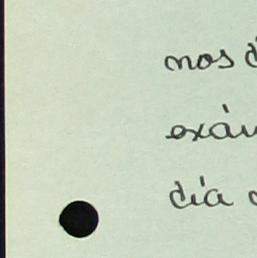 nos d
exám
día